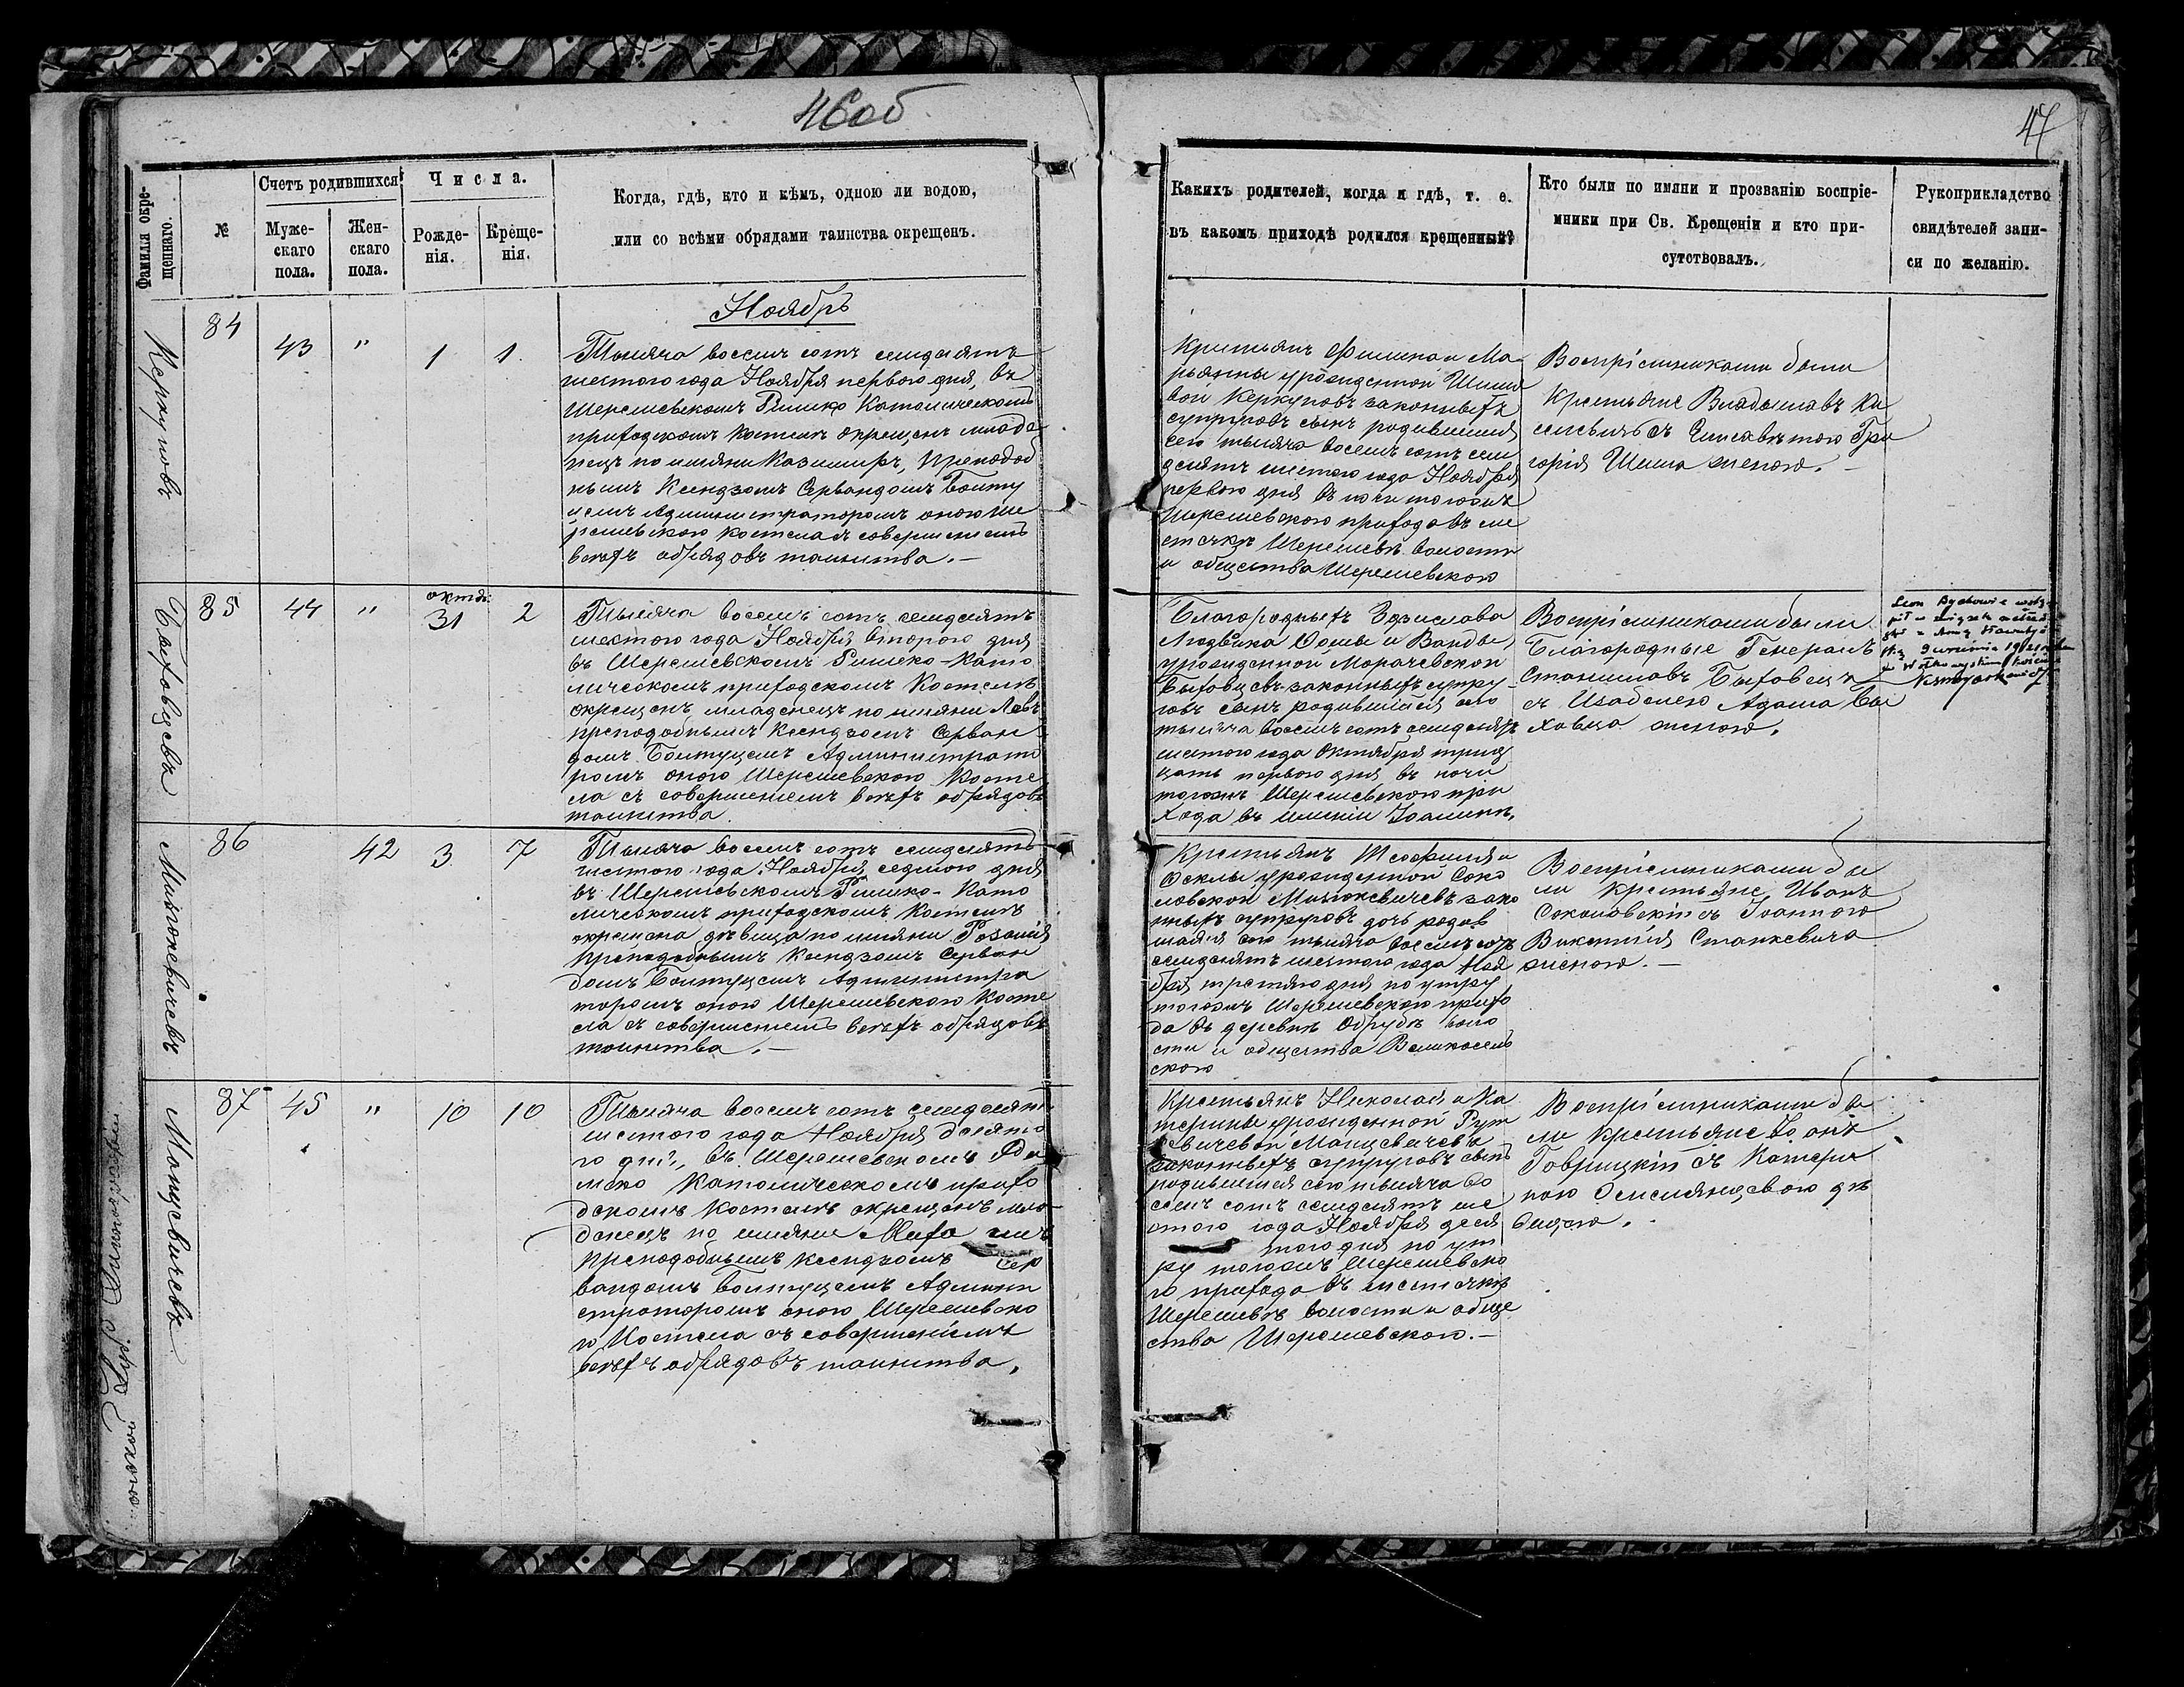 46об
47
Фамилія окре-
щеннаго.
№
Счетъ родившихся:
Муже-
скаго
пола.
Жен-
скаго
пола.
Числа.
Рожде-
нія.
Креще-
нія.
Когда, гдѣ, кто и кѣмъ, одною ли водою,
или со всѣми обрядами таинства окрещенъ.
Какихъ родителей, когда и гдѣ, т. е.
въ какомъ приходѣ родился крещенный?
Кто были по имяни и прозванію воспріе-
мники при Св. Крещеніи и кто при-
сутствовалъ.
Рукоприкладство
свидѣтелей запи-
си по желанію.
Ноябрь
Керкуповъ
84
43
"
1
1.
Тысяча восемь сотъ семдесятъ
шестого года Ноября первого дня, въ
Шерешевскомъ Римско Католическомъ
приходскомъ костелѣ окрещенъ младе
нецъ по имяни Казимиръ, преподоб
нымъ Ксендзомъ Сервандомъ Боиту
цемъ Администраторомъ оного Ше
решевского костела съ совершеніемъ
всехъ обрядовъ таинства.—
Крестьянъ Филипа и Ма
рьянны урожденной Шиш
вой Керкуповъ законныхъ
супруговъ сынъ родившійся
сего тысяча восемь сотъ сем
десятъ шестого года Ноября
первого дня въ ночи тогожъ
Шерешевского прихода въ ме
стечкѣ Шерешевѣ волости
и общества Шерешевского
Воспріемниками были
Крестьяне Владыславъ
съ Елисаветою Гри
горія Шиша женою.—
Быховцевъ
85
44
"
октяб:
31
2
Тысяча восемь сотъ семдесятъ
шестого года Ноября второго дня
въ Шерешевскомъ Римско-Като
лическомъ приходскомъ Костелѣ
окрещенъ младенецъ по имяни Левъ
преподобнымъ Ксендзомъ Серван
домъ Боитуцемъ Администрато
ромъ оного Шерешевского Косте
ла съ совершеніемъ всехъ обрядовъ
таинства.
Благородныхъ Здзислава
Людвика и Ванды,
урожденной Марачевской
Быховцевъ законныхъ супру-
говъ сынъ родившійся сего
тысяча восемь сотъ семдесятъ
шестого года Октября трид
цать первого дня въ ночи
тогожъ Шерешевского при
хода въ имѣніи
Воспріемниками были
Благородные Генералъ
Станиславъ Быховецъ
съ Изабелею Адама Бы
ховца женою.
Leon Bychowiec wstą
pił w związek małżeń
ski z Anną
9 1921
w
Мильткевичевъ
86
42
3
7
Тысяча восемь сотъ семдесятъ
шестого года Ноября седмого дня
въ Шерешевскомъ Римско-Като
лическомъ приходскомъ костелѣ
окрещена дѣвица по имяни Розалія
преподобнымъ Ксендзомъ Серван
домъ Боитуцемъ Администра
торомъ оного Шерешевского Косте
ла съ совершеніемъ всехъ обрядовъ
таинства.—
Крестьянъ Теофиля и
Феклы урожденной Соко
ловской зако
нныхъ супруговъ дочь родив
шаяся сего тысяча восемь сотъ
семдесятъ шестого года Ноя
бря третяго дня по утру
тогожъ Шерешевского прихо
да въ деревнѣ Обрубѣ воло
сти и общества Великосель
ского
Воспріемниками бы
ли крестьяне Иванъ
Соколовскій съ Іоанною
Викентія Станкевича
женою.—
Манцевичевъ
87
45
"
10
10
Тысяча восемь сотъ семдесятъ
шестого года Ноября десято
го дня, въ Шерешевскомъ Ри
мско Католическомъ прихо
дскомъ костелѣ окрещенъ мла
денецъ по имяни Михаилъ
преподобнымъ Ксендзомъ Сер
вандомъ Боитуцемъ Админи
страторомъ оного Шерешевско
го Костела съ совершеніемъ
всехъ обрядовъ таинства.
Крестьянъ Николая и Ка
терины урожденной Рут
кевичевой Манцевичевъ
законныхъ супруговъ сынъ
родившійся сего тысяча во
семь сотъ семдесятъ ше
стого года Ноября деся
того дня по ут
ру тогожъ Шерешевско
го прихода въ местечкѣ
Шерешевѣ волости и обще
ства Шерешевского.—
Воспріемниками бы
ли крестьяне Іоанъ
Говрицкій съ Катери
ною дѣ
вицею.